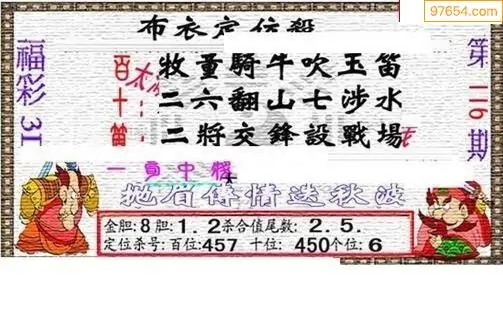 97654.com
布衣定位殺
福彩3D
第116期
百 牧童騎牛吹玉笛
十: 二六翻山七涉水
笛: 二將交鋒設戰場
抛眉傳情送秋波
金胆:8胆:1.2杀合值尾数:2.5.
定位杀号:百位:457 十位:450个位:6